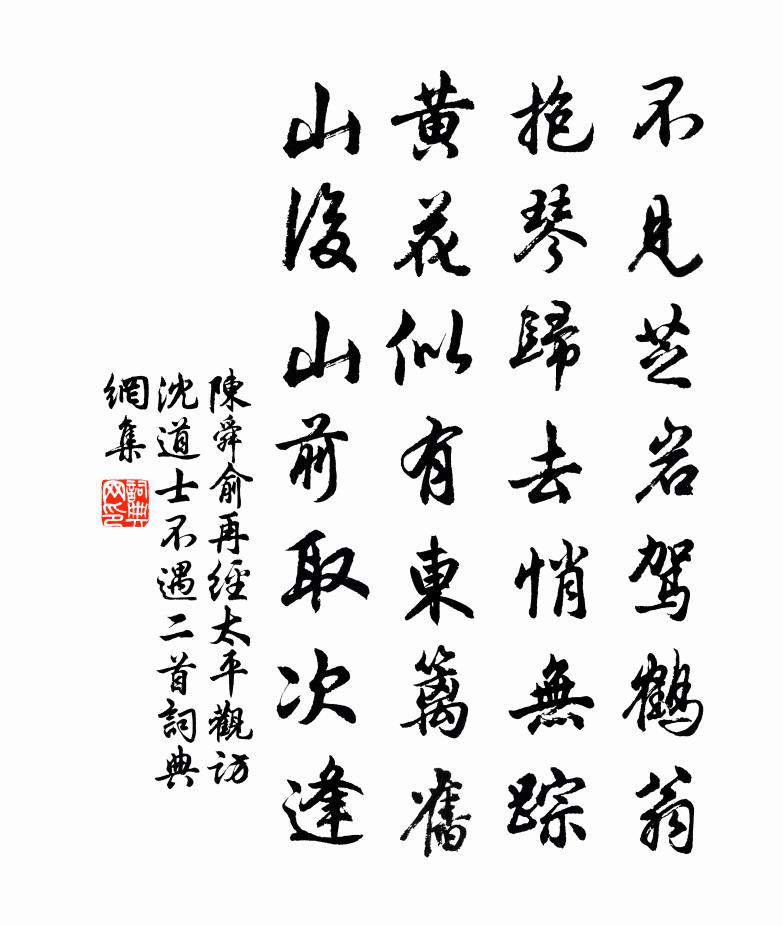 不見芝岩駕鶴翁
抱琴歸去悄無踪
黃花似有東籬舊
山後山前取次逢
陳舜俞再經太平觀訪
沈道士不遇二首詞典
網集
詞典
网印